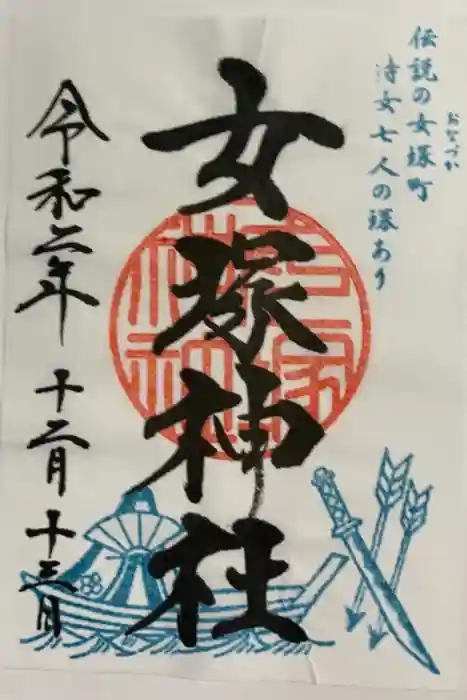 伝説の女塚町
おなづか
侍女七人の塚あり
女塚神社
令和二年
十二月
十三日